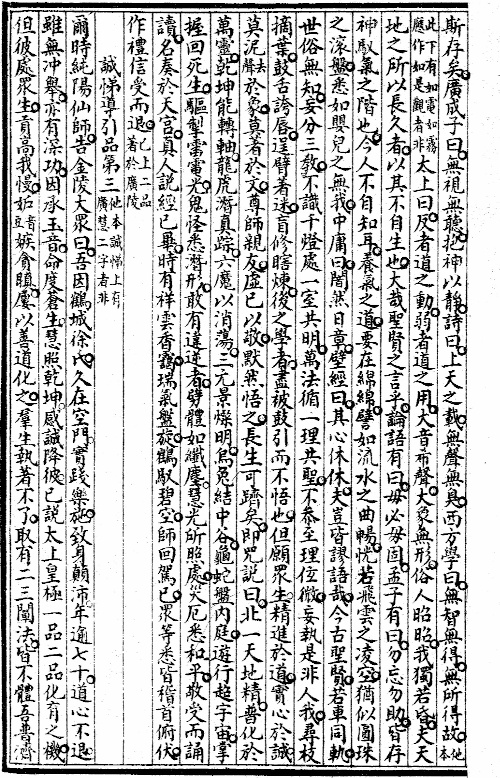 斯存矣廣成子曰無視無聽抱神以靜詩曰上天之載無聲無臭西方學曰無智無得無所得故他本
此下有如電如霧應作如是觀者非太上曰反者道之動弱者道之用大音希聲大象無形俗人昭昭我獨若昏夫天
地之所以長久者以其不自生也大哉聖賢之言乎論語有曰毋必毋固孟子有曰勿忘勿助皆存
神馭氣之階也今人不自知耳養氣之道要在綿綿譬如流水之曲暢恍若飛雲之凌空猶似圓珠
之滾盤悉如嬰兒之無我中庸曰闇然日章壁經曰其心休休夫豈謬語哉今古聖賢若車同軌
世俗無知妄分三教不識千燈處一室共明萬法循一理共聖不叅至理位微妄執是非人我尋枝
摘葉鼓舌誇唇逞臂著迷盲修瞎煉後之學者盡被鼓引而不悟也但願眾生精進於道實心於誠
莫泥去聲於象莫著於文尊師親友虛已以敬默然悟之長生可躋矣即咒說曰北一天地精善化於
萬靈乾坤能轉軸龍虎潛真踪六魔以消蕩三元景燦明烏兔結中谷龜蛇盤內庭遊行超宇宙掌
握回死生驅掣雷電光鬼怪悉潛形敢有違逆者劈體如纖塵慧光所照處災厄悉和平敬受而誦
讀名奏於天宮真人說經已畢時有祥雲香靄瑞氣盤旋鶴馭碧空師回駕已眾等悉皆稽首俯伏
作禮信受而退已上二品著於廣陵
誠悌導引品第三他本誠悌上有廣慧二字者非
爾時純陽仙師告金陵大眾曰吾因鶴城徐氏久在空門實踐樂施致身顛沛年適七十道心不退
雖無冲舉亦有深功因承玉音命度蒼生慧照乾坤感誠降彼已說太上皇極一品二品化育之機
但彼處眾生貢高我慢妬音豆嫉貪瞋屢以善道化之羣生執著不了取有二三闡法皆不體吾普濟